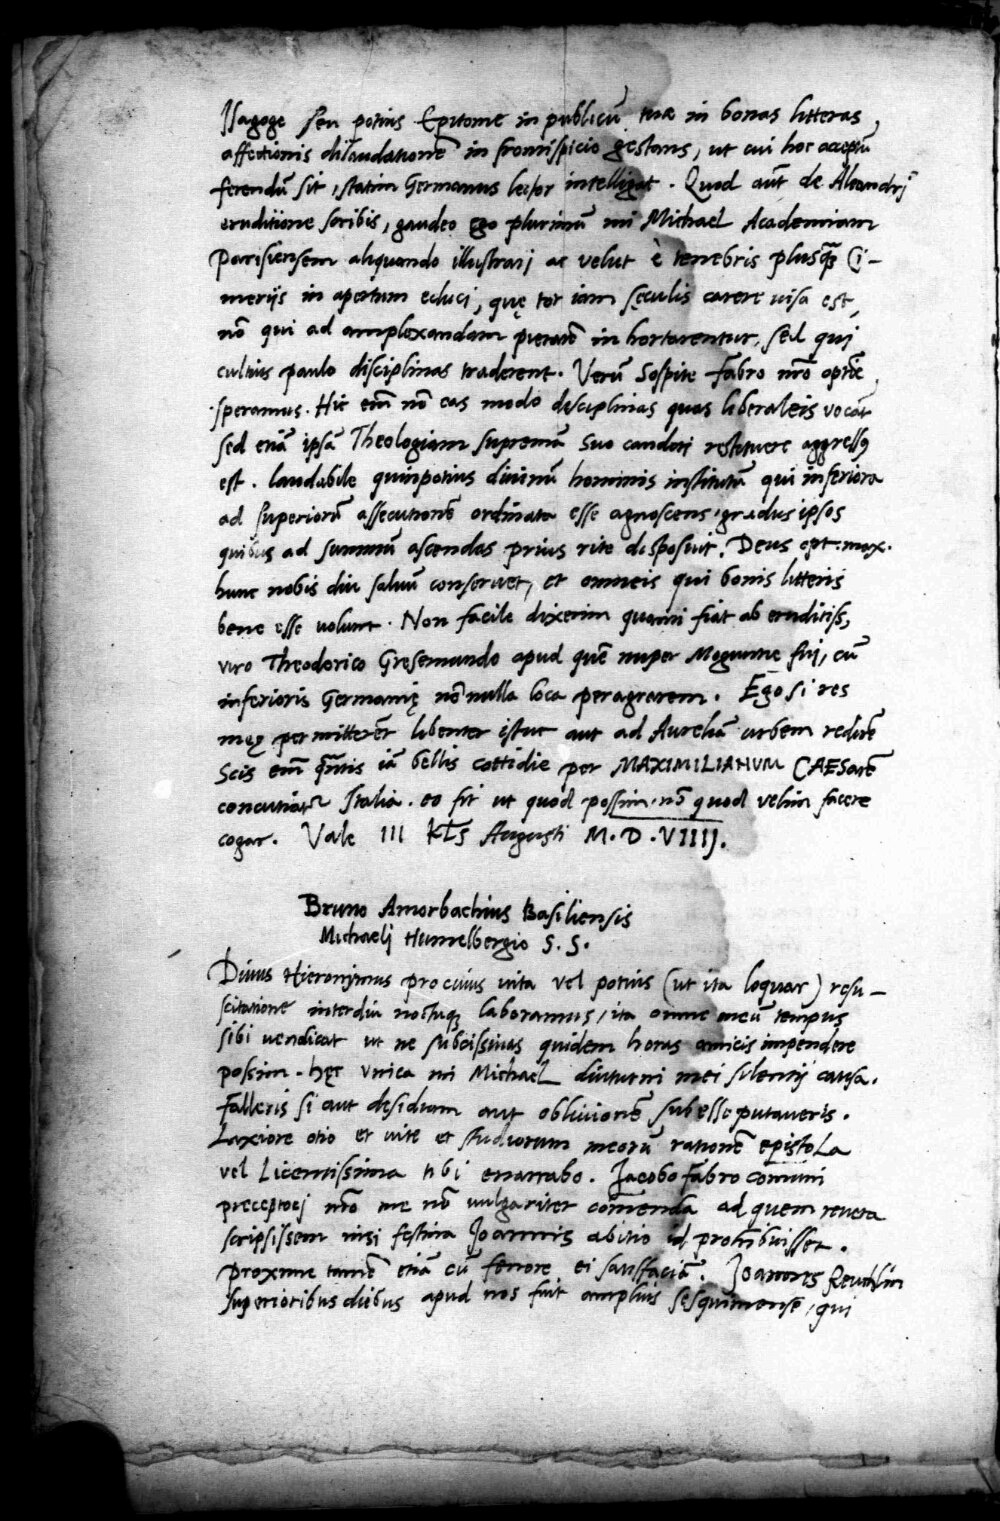 Isagoge seu potius Epitome in publicū tuæ in bonas litteras,
affectionis dilaudationē in frontispicio gestans, ut cui hoc acceptū
ferendū sit, statim Germanus lector intelligat. Quod aūt de Aleandrj
eruditione scribis, gaudeo ego plurimū mi Michael Academiam
Parisiensem aliquando illustrarj ac velut è tenebris plusq̄ Ci-
merijs in apertum educi, quę tot iam sęculis carere uisa est,
nō qui ad amplexandam pietatē inhortarentur, sed qui
cultius paulo disciplinas traderent. Verū Sospite Fabro nr̄o optīe
speramus. Hic em̄ nō eas modo disciplinas quas liberaleis vocāt
sed etiā ipsā Theologiam supremā suo candori restituere aggressꝰ
est. laudabile quinpotius diuinū hominis institutū qui inferiora
ad superiorū assecutionē ordinata esse agnoscens, gradus ipsos
quibus ad summū ascendas prius rite disposuit. Deus opt. max.
hunc nobis diu saluū conseruet, et omneis qui bonis litteris
bene esse uolunt. Non facile dixerim quanti fiat ab eruditiss,
viro Theodorico Gresemundo apud quē nuper Moguntiæ fui, cū
inferioris Germanię nōnulla loca peragrarem. Ego si res
meę permitterēt libenter istuc aut ad Aureliā urbem redirē
Scis em̄ q̄ntis iā bellis cottidie per MAXIMILIANVM CAESarē
concutiatr Italia. eo fit ut quod possim, nō quod velim facere
cogar. Vale III kls Augusti M.D.VIIIJ.
Bruno Amorbachius Basiliensis
Michaelj Humelbergio S. S.
Diuus Hieronymus pro cuius uita vel potius (ut ita loquar) resu-
scitatione interdiu noctuq̨ laboramus, ita omne meū tempus
sibi uendicat ut ne subcissiuas quidem horas amicis impendere
possim. hęc vnica mi Michael diuturni mei silentij causa.
Falleris si aut desidiam aut obliuionē subesse putaueris.
Laxiore otio et uite et studiorum meorū rationē epistola
vel Licentissima tibi enarrabo. Jacobo Fabro comūni
preceptorj nr̄o me nō uulgariter cōmenda ad quem reuera
scripsissem nisi festina Joannis abitio id prohibuisset.
proxime tamē etiā cū fenore ei satisfaciā. Joannes Reuchlin
superioribus diebus apud nos fuit amplius sesquimense, qui